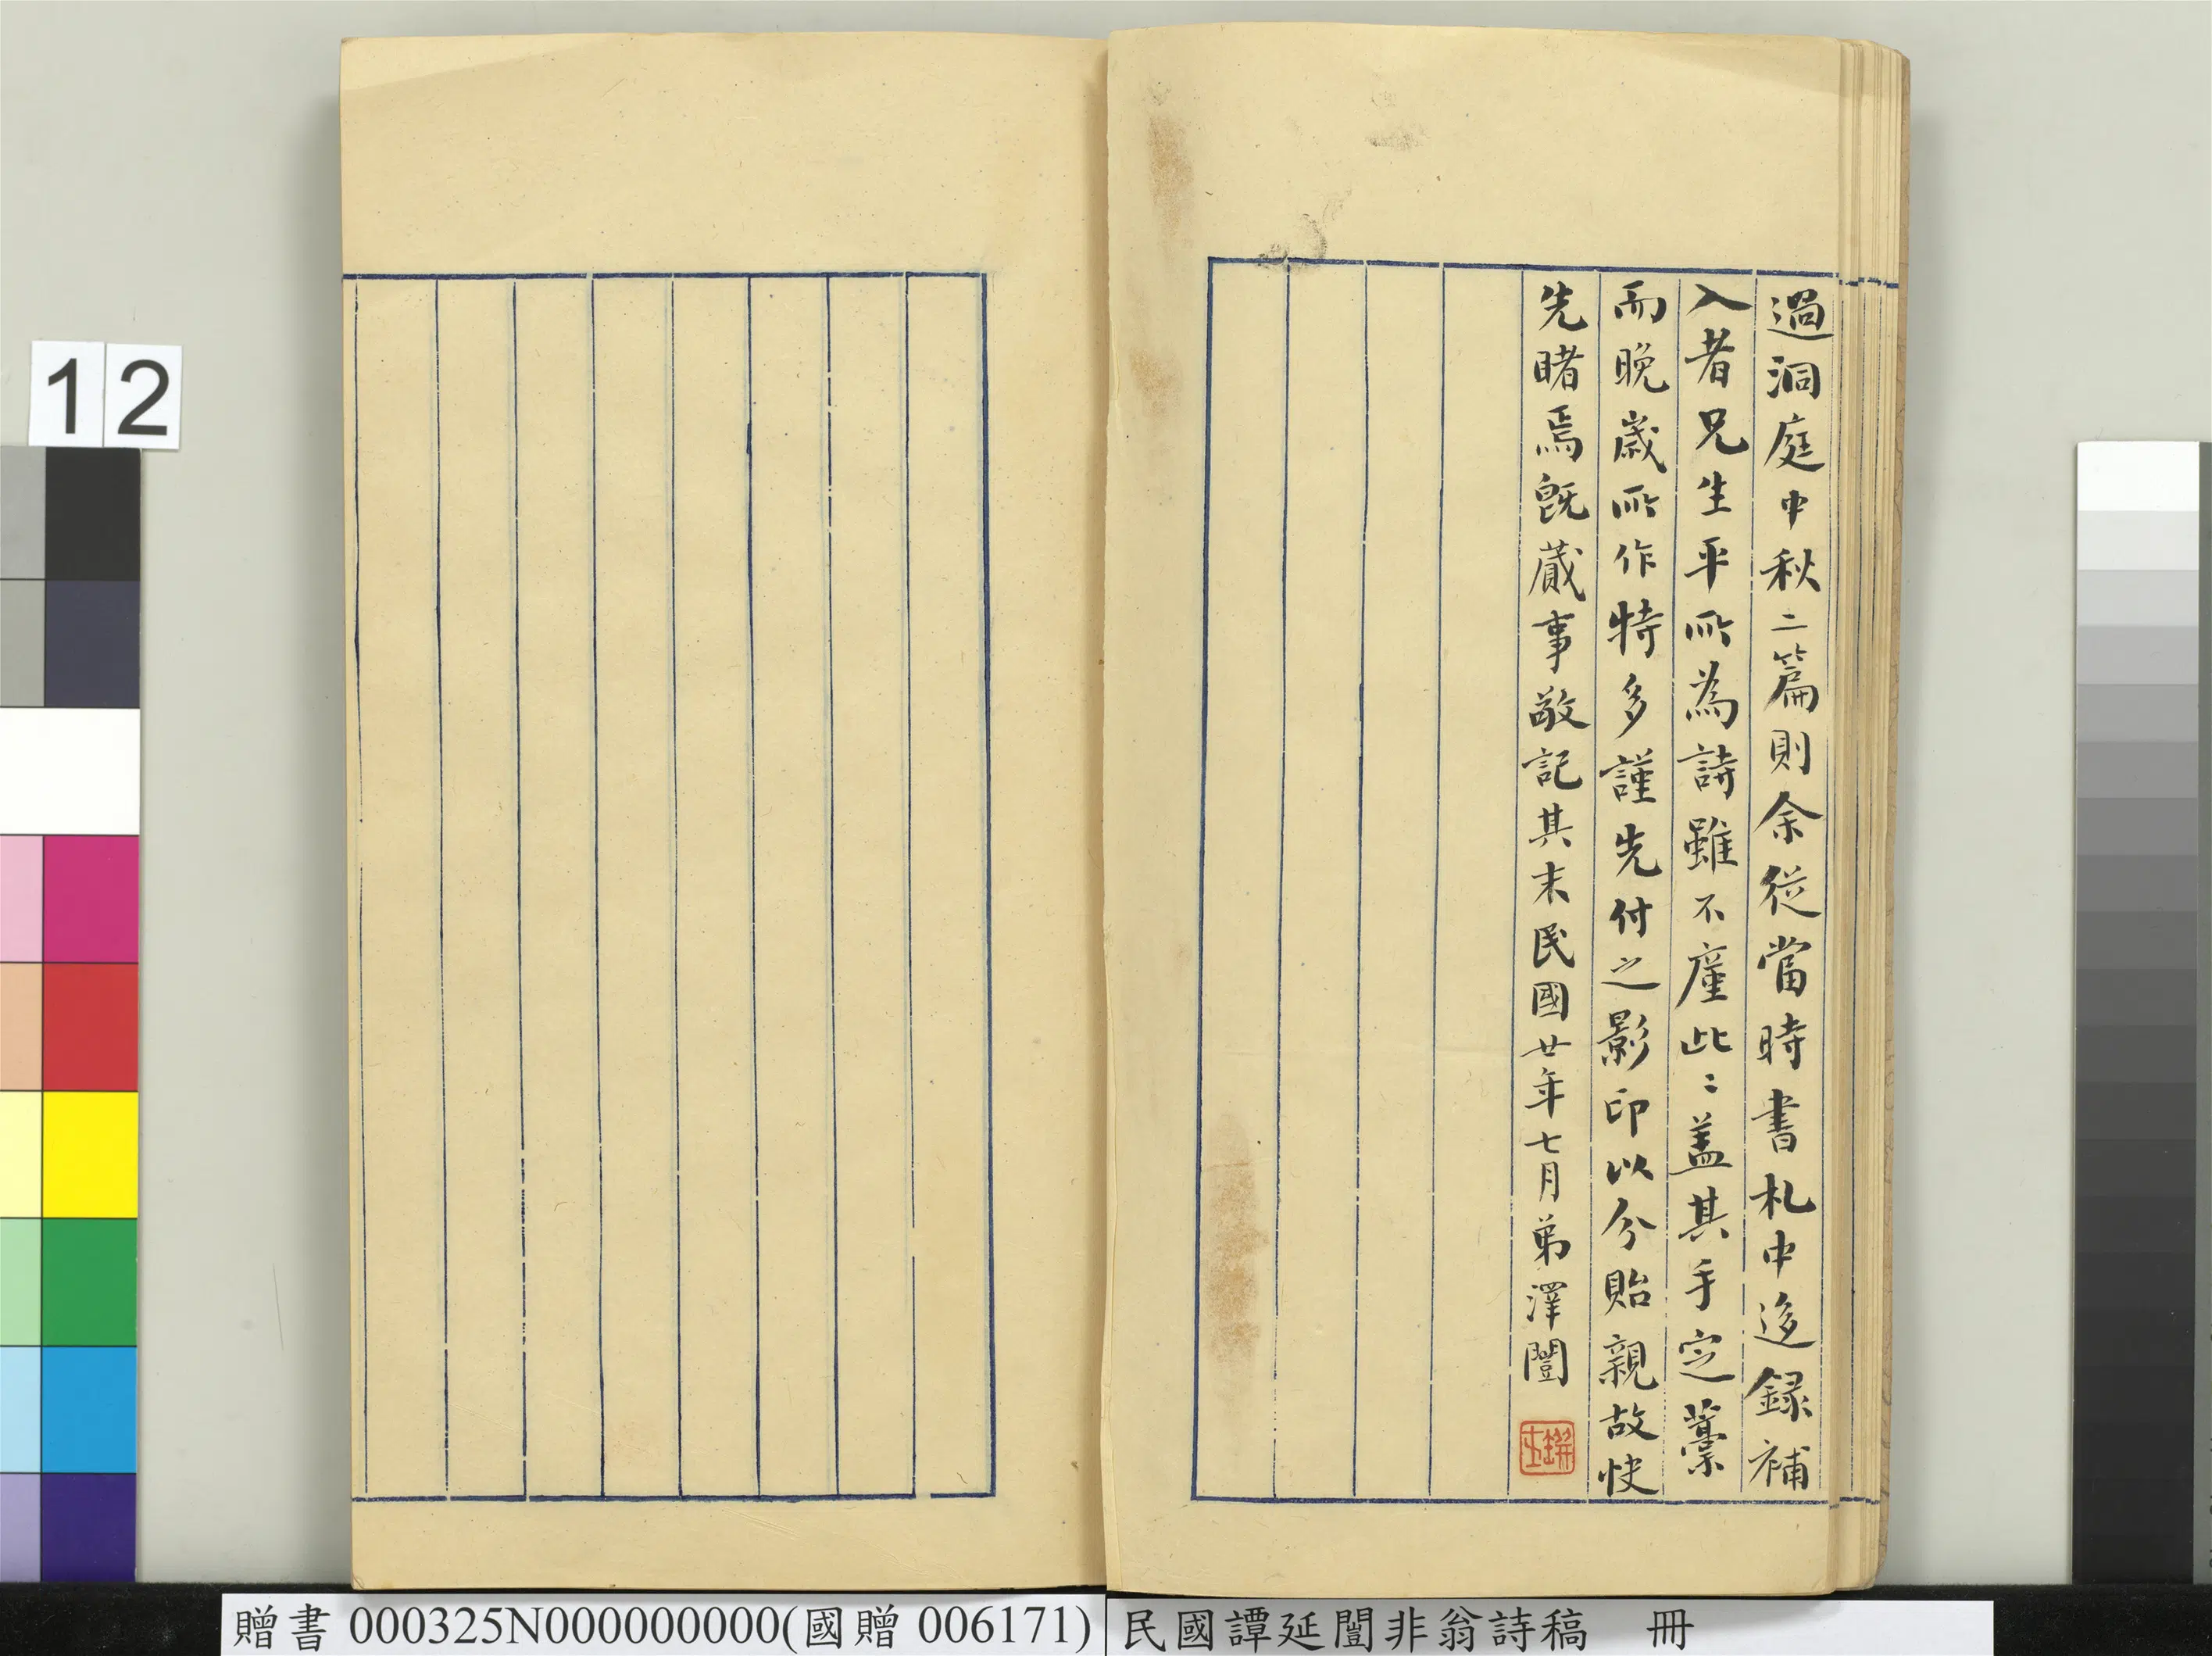 過洞庭中秋二篇則余從當時書札中迻録補
入者兄生平所為詩雖不廑此〻蓋其手定藁
而晚歲所作特多謹先付之影印以分貽親故快
先睹焉既蕆事敬記其末民國廿年七月弟澤闓
12
贈書 000325N000000000(國贈 006171) 民國譚延闓非翁詩稿 冊